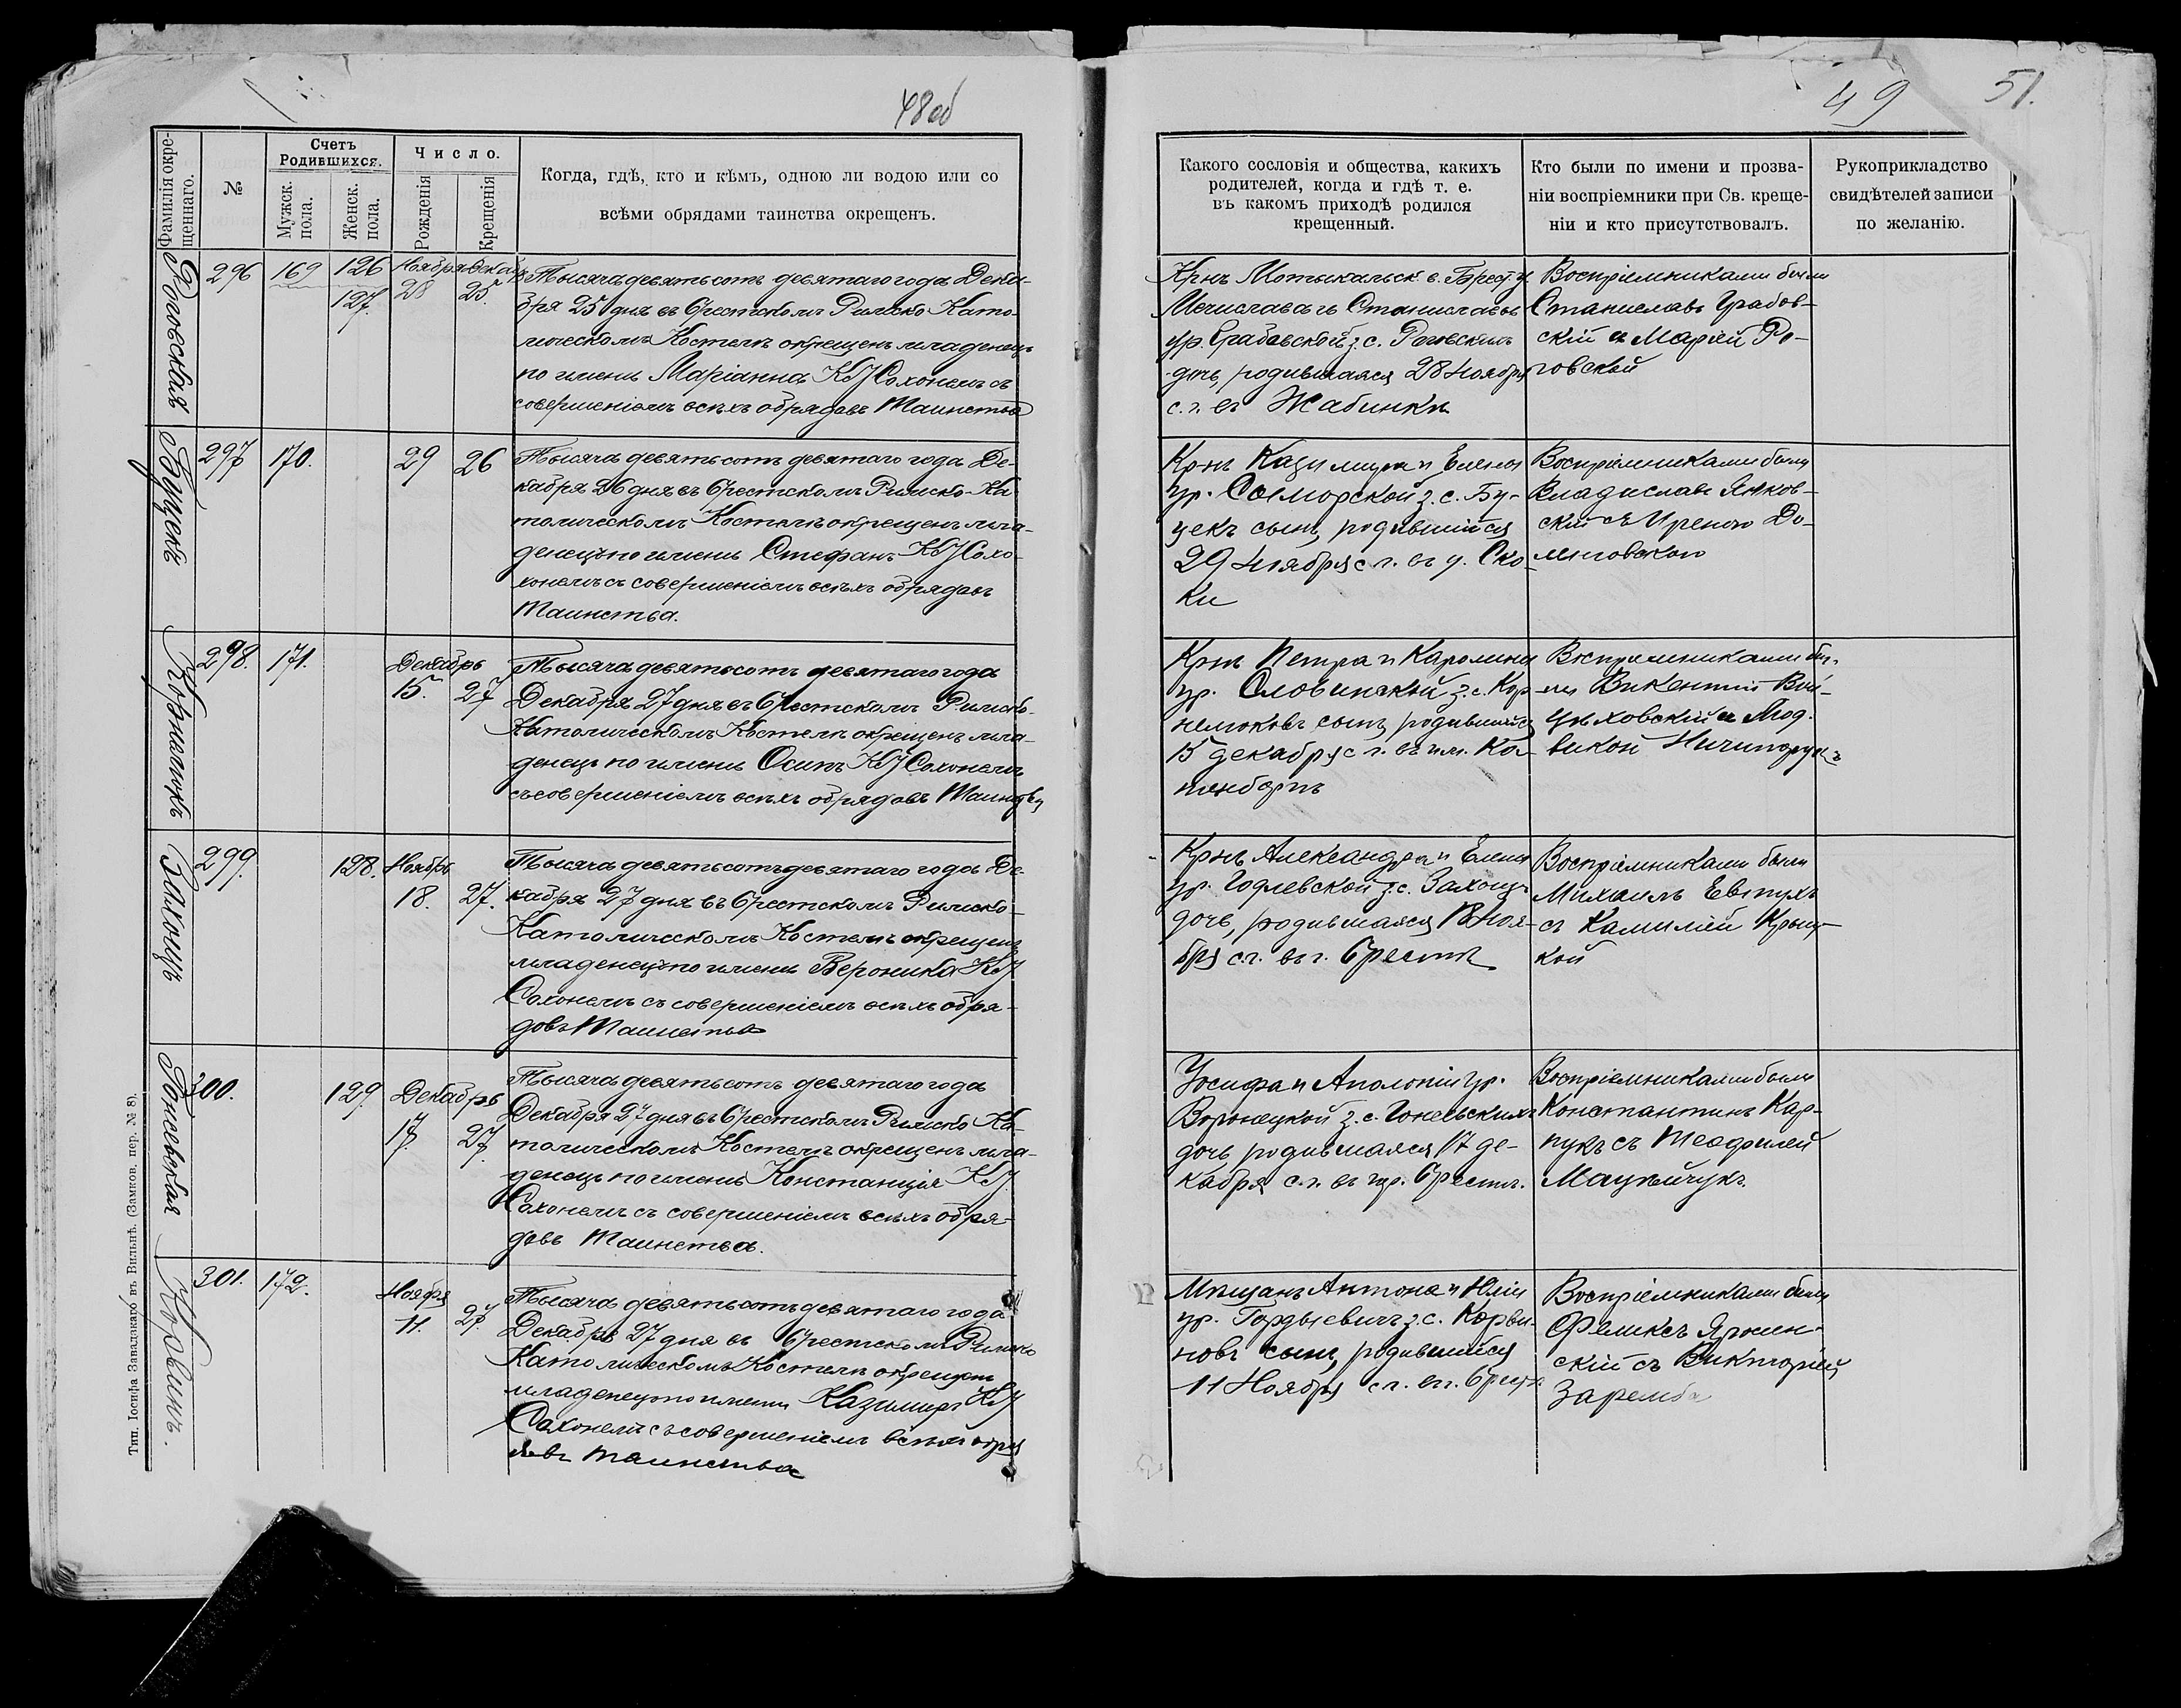 48об
Фамилія окре-
щеннаго.
№
Счетъ
Родившихся.
Мужск.
пола.
Женск.
пола.
Число.
Рожденія
Крещенія
Когда, гдѣ, кто и кѣмъ, одною ли водою или со
всѣми обрядами таинства окрещенъ.
Роговская
296 169 126 Ноября Декабр
127. 28 25.
Тысяча девятьсотъ девятаго года Дека-
бря 25 дня въ Брестскомъ Римско Като-
лическомъ Костелѣ окрещенъ младенецъ
по имени Маріанна К Сохонемъ съ
совершеніемъ всѣхъ обрядовъ Таинства
Буцекъ
297 170. 29 26
Тысяча девятьсотъ девятаго года Де-
кабря 26 дня въ Брестскомъ Римско-Ка
толическомъ Костелѣ окрещенъ мла-
денецъ по имени Стефанъ Сохо-
немъ съ совершеніемъ всѣхъ обрядовъ
Таинства.
298. 171. Декабрь
15. 27
Тысяча девятьсотъ девятаго года
Декабря 27 дня въ Брестскомъ Римско-
Католическомъ Костелѣ окрещенъ мла-
денецъ по имени Осипъ Сохонемъ
съ совершеніемъ всѣхъ обрядовъ Таинства
299. 128. Ноябрь
18. 27.
Тысяча девятьсотъ девятаго года Де-
кабря 27 дня въ Брестскомъ Римско-
Католическомъ Костелѣ окрещенъ
младенецъ по имени Вероника
Сохонемъ съ совершеніемъ всѣхъ обря-
довъ Таинства
Гоневская
300. 129. Декабрь
17. 27.
Тысяча девятьсотъ девятаго года
Декабря 27 дня въ Брестскомъ Римско Ка-
толическомъ Костелѣ окрещенъ мла-
денецъ по имени Констанція
Сохонемъ съ совершеніемъ всѣхъ обря-
довъ Таинства.
301. 172. Ноября
11. 27.
Тысяча девятьсотъ девятаго года
Декабря 27 дня въ Брестскомъ Римско
Католическомъ Костелѣ окрещенъ
младенецъ по имени Казимиръ
Сохонемъ съ совершеніемъ всѣхъ обря
довъ Таинства
Тип. Іосифа Завадзкаго въ Вильнѣ. (Замков. пер. № 8).
49 51.
Какого сословія и общества, какихъ
родителей, когда и гдѣ т. е.
въ какомъ приходѣ родился
крещенный.
Кто были по имени и прозва-
ніи воспріемники при Св. креще-
ніи и кто присутствовалъ.
Рукоприкладство
свидѣтелей записи
по желанію.
Крнъ Мотыкальск. в. Брест. у.
Мечислава и Станиславы
ур. Грабовской з. с. Роговскихъ
дочь, родившаяся 28 Ноября
с. г. въ Жабинкѣ
Воспріемниками были
Станиславъ Грабов-
скій и Марія Ро-
говской
Крнъ Казимира и Елены
ур. Сикорской з. с. Бу-
цекъ сынъ, родившійся
29 Ноября с. г. въ д. Ско-
ки
Воспріемниками были
Владиславъ Янков-
скій съ Иреною До-
Крнъ Петра и Каролины
ур. Словинской з. с. Кор-
сынъ, родившійся
15 декабря с. г. въ им. Ко-
Воспріемниками бы-
ли Викентій Вой-
цѣховскій и Люд-
викой Ничипорукъ
Крнъ Александра и Елены
ур. Годлевской з. с.
дочь, родившаяся 18 Ноя-
бря с. г. въ г. Брестѣ
Воспріемниками были
Михаилъ Евтухъ
съ Камиліей Крыц-
кой
Іосифа и Аполоніи ур.
Воронецкой з. с. Гоневскихъ
дочь родившаяся 17 де-
кабря с. г. въ гор. Брестѣ.
Воспріемниками были
Константинъ Кар-
пукъ съ Теофилей
Мацѣйчукъ.
Мѣщанъ Антона и Юліи
ур. Гордзѣевичъ з. с. Корви-
новъ сынъ, родившійся
11 Ноября с. г. въ г. Брестѣ
Воспріемниками были
Феликсъ
скій съ Викторіей
Заремба